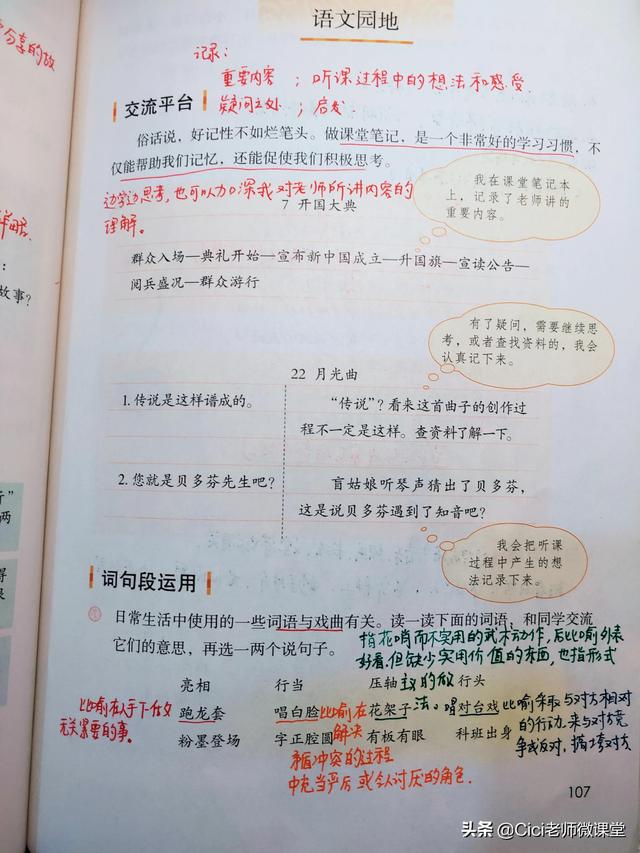 语文园地
分享的故
记录：
重要内容；听课过程中的想法和感受
交流平台
疑问之处；启发
俗话说，好记性不如烂笔头。做课堂笔记，是一个非常好的学习习惯，不
仅能帮助我们记忆，还能促使我们积极思考。
边学边思考，也可以加深我对老师所讲内容的
理解。
我在课堂笔记本
上，记录了老师讲的
重要内容。
7 开国大典
群众入场—典礼开始—宣布新中国成立—升国旗—宣读公告—
阅兵盛况—群众游行
故事？
有了疑问，需要继续思
考，或者查找资料的，我会
认真记下来。
22 月光曲
1.传说是这样谱成的。
“传说”？看来这首曲子的创作过
程不一定是这样。查资料了解一下。
2.您就是贝多芬先生吧？
盲姑娘听琴声猜出了贝多芬，
这是说贝多芬遇到了知音吧？
两
我会把听课
过程中产生的想
法记录下来。
词句段运用
日常生活中使用的一些词语与戏曲有关。读一读下面的词语，和同学交流
它们的意思，再选一两个说句子。
指花哨而不实用的武术动作，后比喻外表
好看，但缺少实用价值的东西，也指形式
主义的做
法。
亮相 行当 压轴 行头
跑龙套 唱白脸 花架子 唱对台戏
粉墨登场 字正腔圆 有板有眼 科班出身
比喻在人手下做
无关紧要的事。
比喻在
解决
矛盾冲突的过程
中充当严厉或令人讨厌的角色.
比喻采取与对方相对
的行动，来与对方竞
争或反对，搞垮对方
107
头条 @Cici老师微课堂